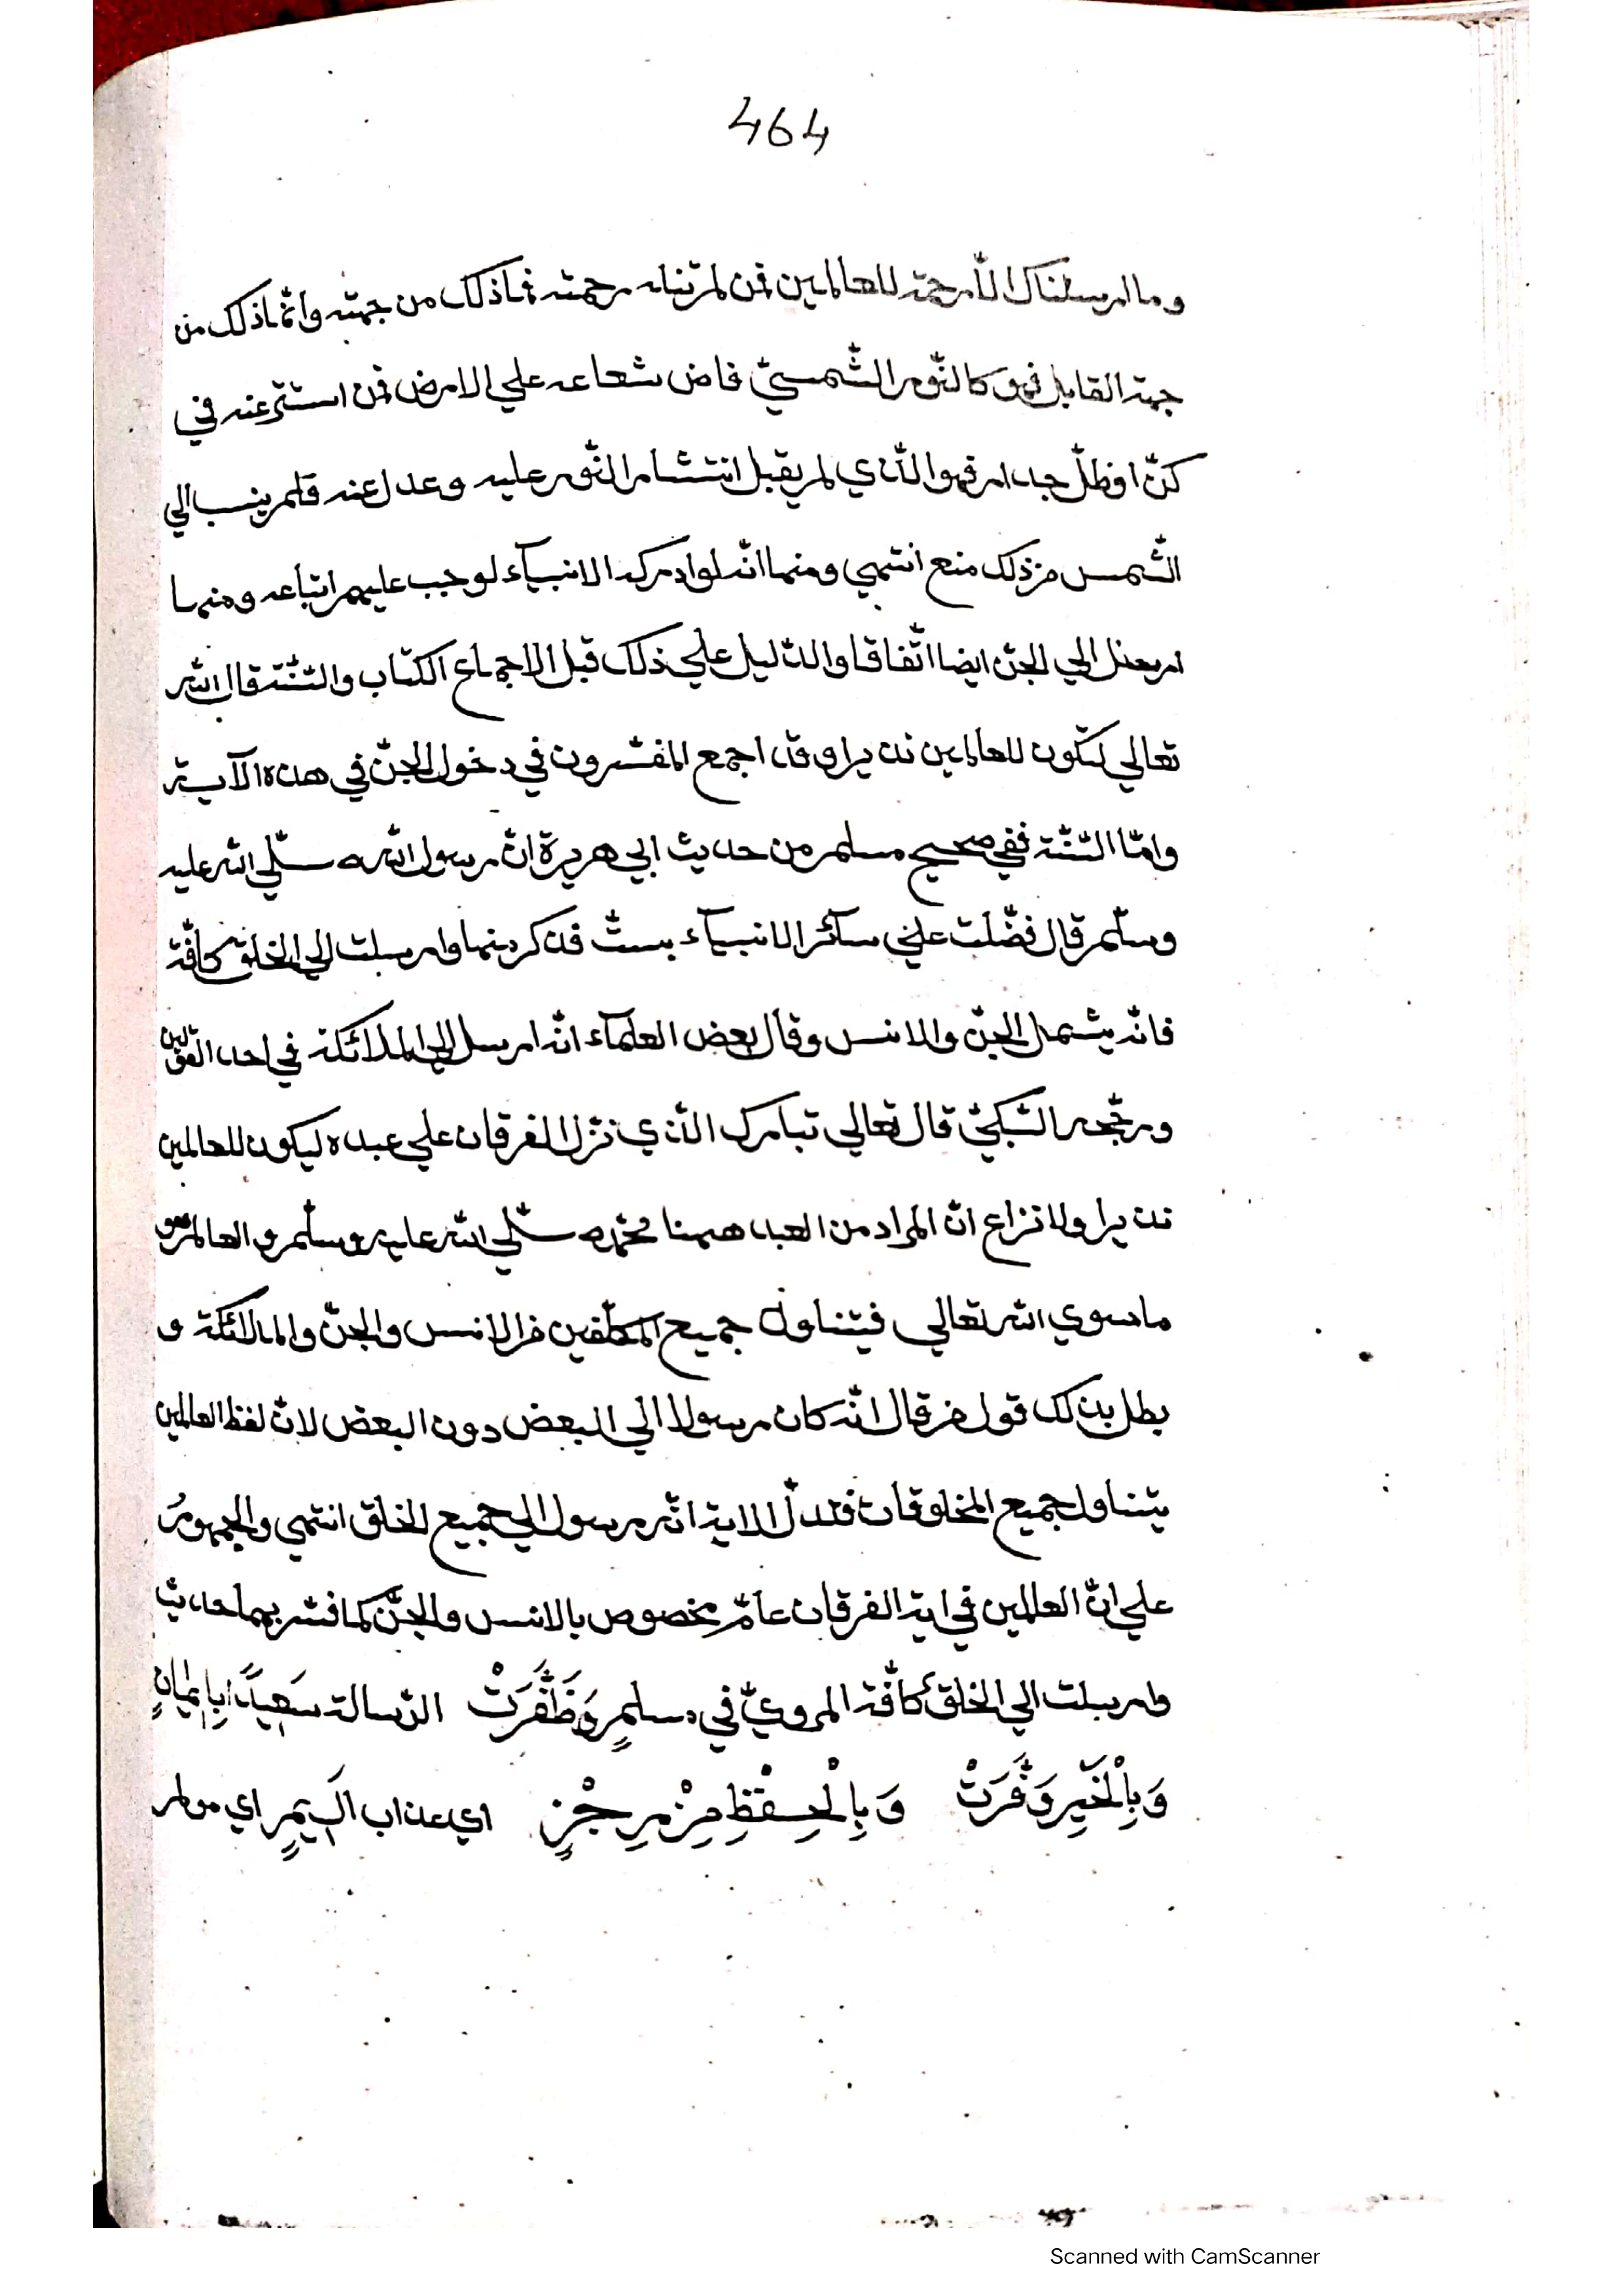 464
وما ارسلناك الّا رحمة للعالمين فمن لم تنله رحمته فماذلك من جهته وانّما ذلك من
جهة القابل فهو كالنّور الشّمسيّ فاض شعاعه علي الارض فمن استتر عنه في
كنّ او ظلّ جدار فهو الّذي لم يقبل انتشار النّور عليه وعدل عنه فلم ينسب الي
الشّمس من ذلك منع انتهي ومنها انّه لو ادركه الانبيآء لوجب عليهم اتباعه ومنها
ارسل الي الجنّ ايضا اتّفاقا والدّليل علي ذلك قبل الاجماع الكتاب والسّنّة قال اللّه
تعالي ليكون للعالمين نذيرا وقد اجمع المفسّرون في دخول الجنّ في هذه الآية
وامّا السّنّة ففي صحيح مسلم من حديث ابي هريرة انّ رسول اللّه صلّي اللّه عليه
وسلّم قال فضّلت علي سآئر الانبيآء بستّ فذكر منها وارسلت الي الخلق كافّة
فانّه يشمل الجنّ والانس وقال بعض العلمآء انّه ارسل الي الملائكة في احد القولين
ورجّحه السّبكيّ قال تعالي تبارك الّذي نزّل الفرقان علي عبده ليكون للعالمين
نذيرا ولا نزاع انّ المراد من العبد ههنا محمّد صلّي اللّه عليه وسلّم والعالم هو
ما سوي اللّه تعالي فيتناول جميع المكلّفين من الانس والجنّ والملائكة و
بطل بذلك قول من قال انّه كان رسولا الي البعض دون البعض لانّ لفظ العالمين
يتناول جميع المخلوقات فتدلّ الاية انّه رسول الي جميع الخلق انتهي والجمهورُ
علي انّ العالمين في اية الفرقان عامّ مخصوص بالانس والجنّ كما فسّر بهما حديث
وارسلت الي الخلق كافّة المرويّ في مسلمٍ وَظَفَّرَتْ الرّسالة سَعِيدًا بِاِيمانٍ
وَبِالْخَيْرِ وَفَّرَتْ وَبِالْحِفْظِ مِنْ رِجْزٍ اي عذاب اَلِيمٍ اي مولم
Scanned with CamScanner